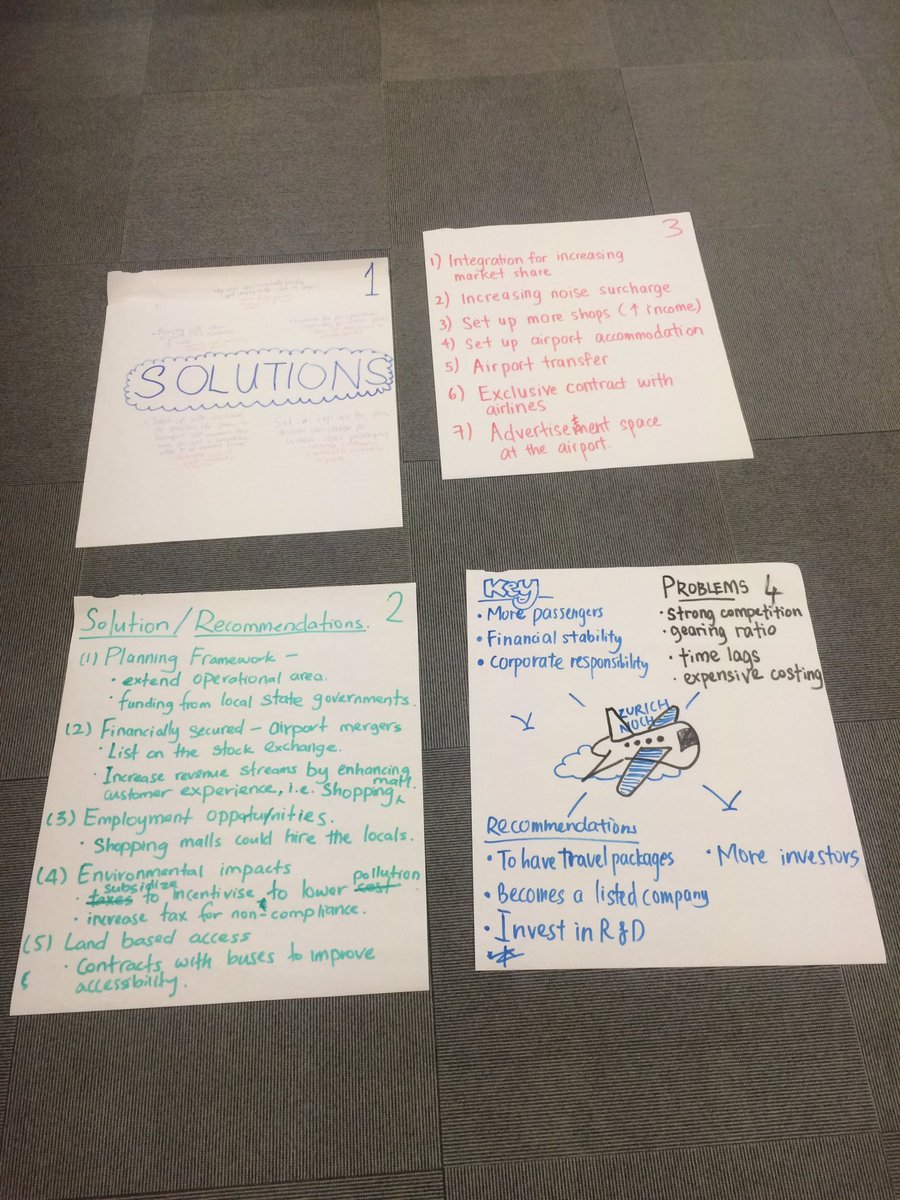 1
SOLUTIONS
3
1) Integration for increasing
market share
2) Increasing noise surcharge
3) Set up more shops (↑ income)
4) Set up airport accommodation
5) Airport transfer
6) Exclusive contract with
airlines
7) Advertisement space
at the airport.
2
Solution/Recommendations.
(1) Planning Framework -
• extend operational area.
• funding from local state governments.
(2) Financially secured - airport mergers
• List on the stock exchange.
• Increase revenue streams by enhancing
customer experience, i.e. shopping mall
(3) Employment opportunities.
• Shopping malls could hire the locals.
(4) Environmental impacts
• taxes subsidize to incentivise to lower cost pollution
• increase tax for non-compliance.
(5) Land based access
• Contracts with buses to improve
accessibility.
4
Key
• More passengers
• Financial stability
• corporate responsibility
PROBLEMS
• Strong competition
• gearing ratio
• time lags
• expensive costing
ZURICH
NOCH
Recommendations
• To have travel packages
• Becomes a listed company
• Invest in R&D
• More investors